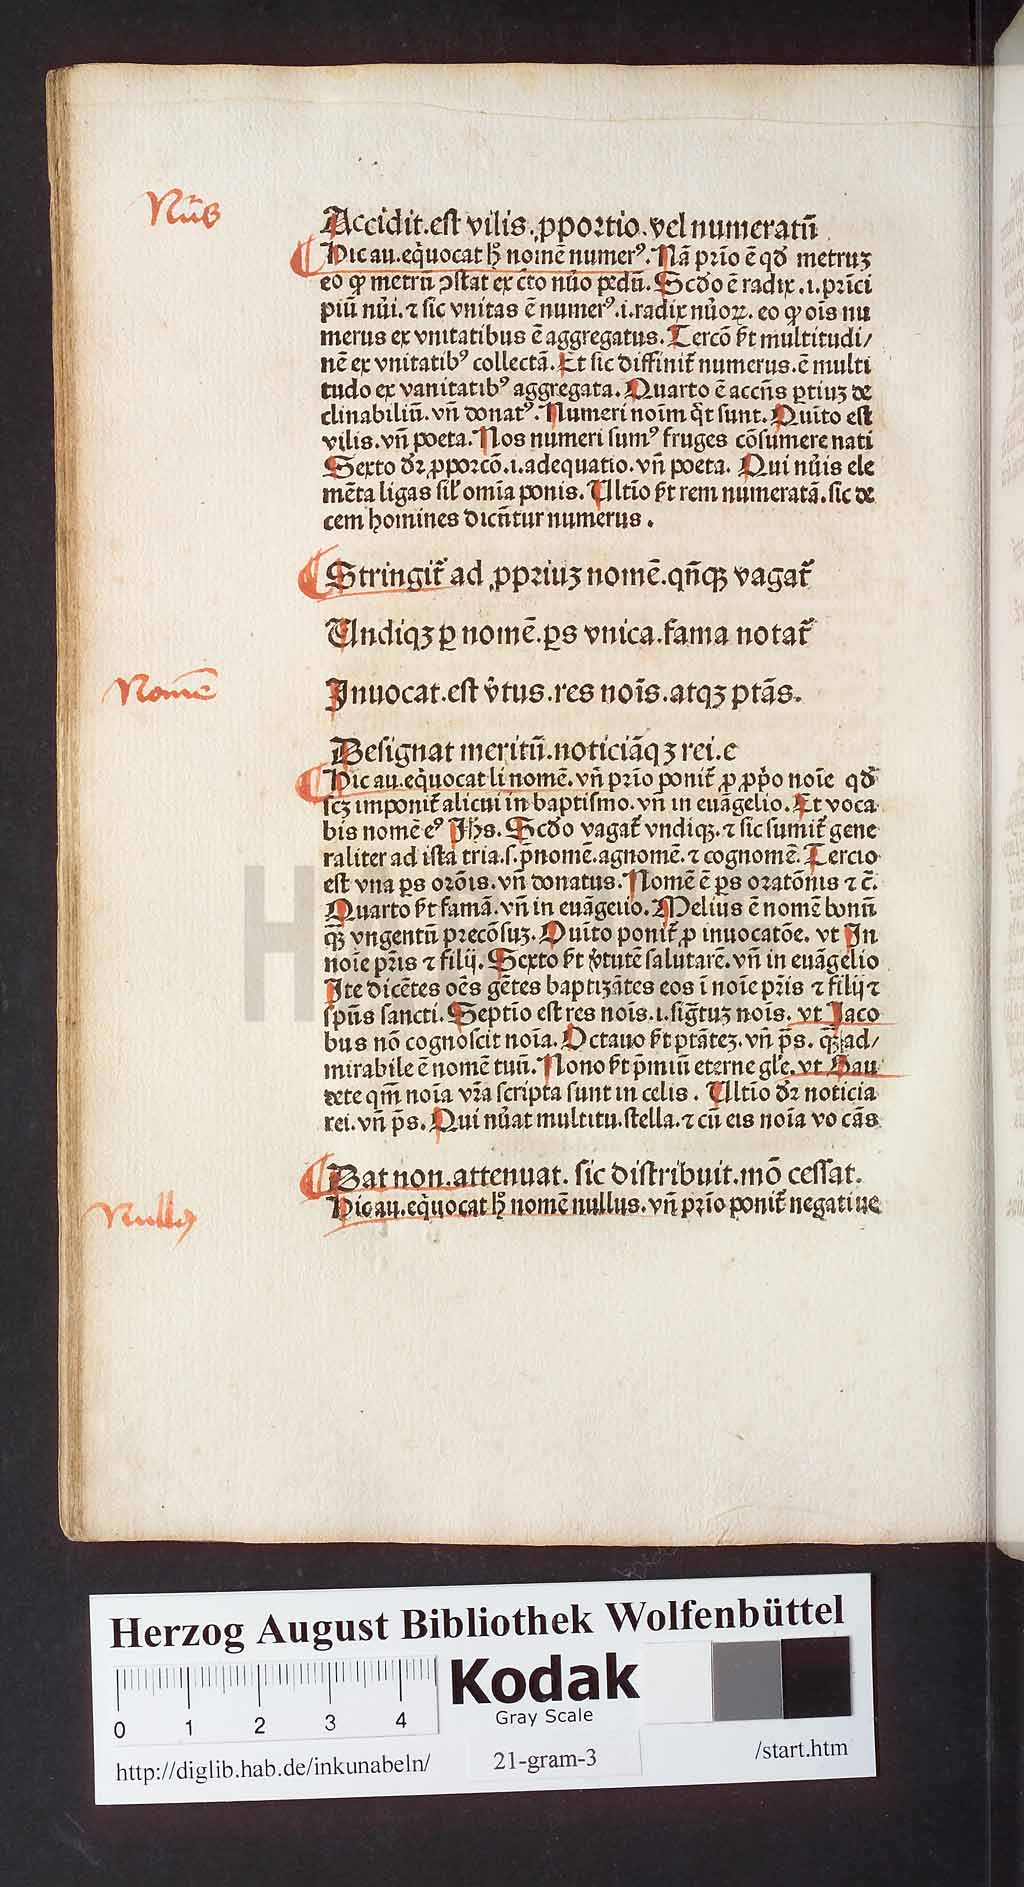 Nūs
Accidit.est vilis.ꝓportio.vel numeratū
Hic au.eq̇uocat hͦ nomē numerꝰ. Nā prīo ē qd̄ metruꝫ
eo ꝙ metrū ꝯstat ex c̄to nūo pedū. Scd̄o ē radix .i. prīci
piū nūi. ⁊ sic vnitas ē numerꝰ.i.radix nūoꝝ. eo ꝙ oīs nu
merus ex vnitatibus ē aggregatus. Tercō s̄t multitudi/
nē ex vnitatibꝰ collectā. Et sic diffinit̄ numerus.ē multi
tudo ex vanitatibꝰ aggregata. Quarto ē accn̄s ꝑtiuꝫ de
clinabiliū. vn̄ donatꝰ. Numeri noīm q̇t sunt. Quīto est
vilis. vn̄ poeta. Nos numeri sumꝰ fruges cōsumere nati
Sexto dr̄ ꝓporcō.i.adequatio. vn̄ poeta. Qui nūis ele
mēta ligas sil̄ omīa ponis. Ultīo s̄t rem numeratā. sic de
cem homines dicūtur numerus.
Stringit̄ ad ꝓpriuꝫ nomē.qn̄qꝫ vagat̄
Undiqꝫ ꝑ nomē.ꝑs vnica.fama notat̄
Nomē
Inuocat.est v̄tus.res noīs.atqꝫ ptās.
Designat meritū.noticiāqꝫ rei.e
Hic au.eq̇uocat li nomē. vn̄ prīo ponit̄ ꝓ ꝓpo noīe qd̄
scꝫ imponit̄ alicui in baptismo. vn̄ in euāgelio. Et voca
bis nomē eꝰ Jhs. Scd̄o vagat̄ vndiqꝫ. ⁊ sic sumit̄ gene
raliter ad ista tria.s.p̄nomē.agnomē. ⁊ cognomē. Tercio
est vna ꝑs orōis. vn̄ donatus. Nomē ē ꝑs oratōnis ⁊ c̄.
Quarto s̄t famā. vn̄ in euāgelio. Melius ē nomē bonū
qꝫ vngentū precōsuꝫ. Quīto ponit̄ ꝓ inuocatōe. vt In
noīe pr̄is ⁊ filij. Sexto s̄t v̄tutē salutarē. vn̄ in euāgelio
Ite dicētes oēs gētes baptizātes eos ī noīe pr̄is ⁊ filij ⁊
spūs sancti. Septīo est res noīs.i.sig̅tuꝫ noīs. vt Jaco
bus nō cognoscit noīa. Octauo s̄t ptāteꝫ. vn̄ p̄s. qꝫ ad/
mirabile ē nomē tuū. Nono s̄t p̄miū eterne gl̄e. vt Gau
dete qm̄ noīa vr̄a scripta sunt in celis. Ultīo dr̄ noticia
rei. vn̄ p̄s. Qui nūat multitu.stella.⁊ cū eis noīa vo cās
Dat non.attenuat. sic distribuit.mō cessat.
Nullꝰ
Hic au.eq̇uocat hͦ nomē nullus. vn̄ prīo ponit̄ negatiue
Herzog August Bibliothek Wolfenbüttel
0 1 2 3 4
Kodak
Gray Scale
http://diglib.hab.de/inkunabeln/
21-gram-3
/start.htm